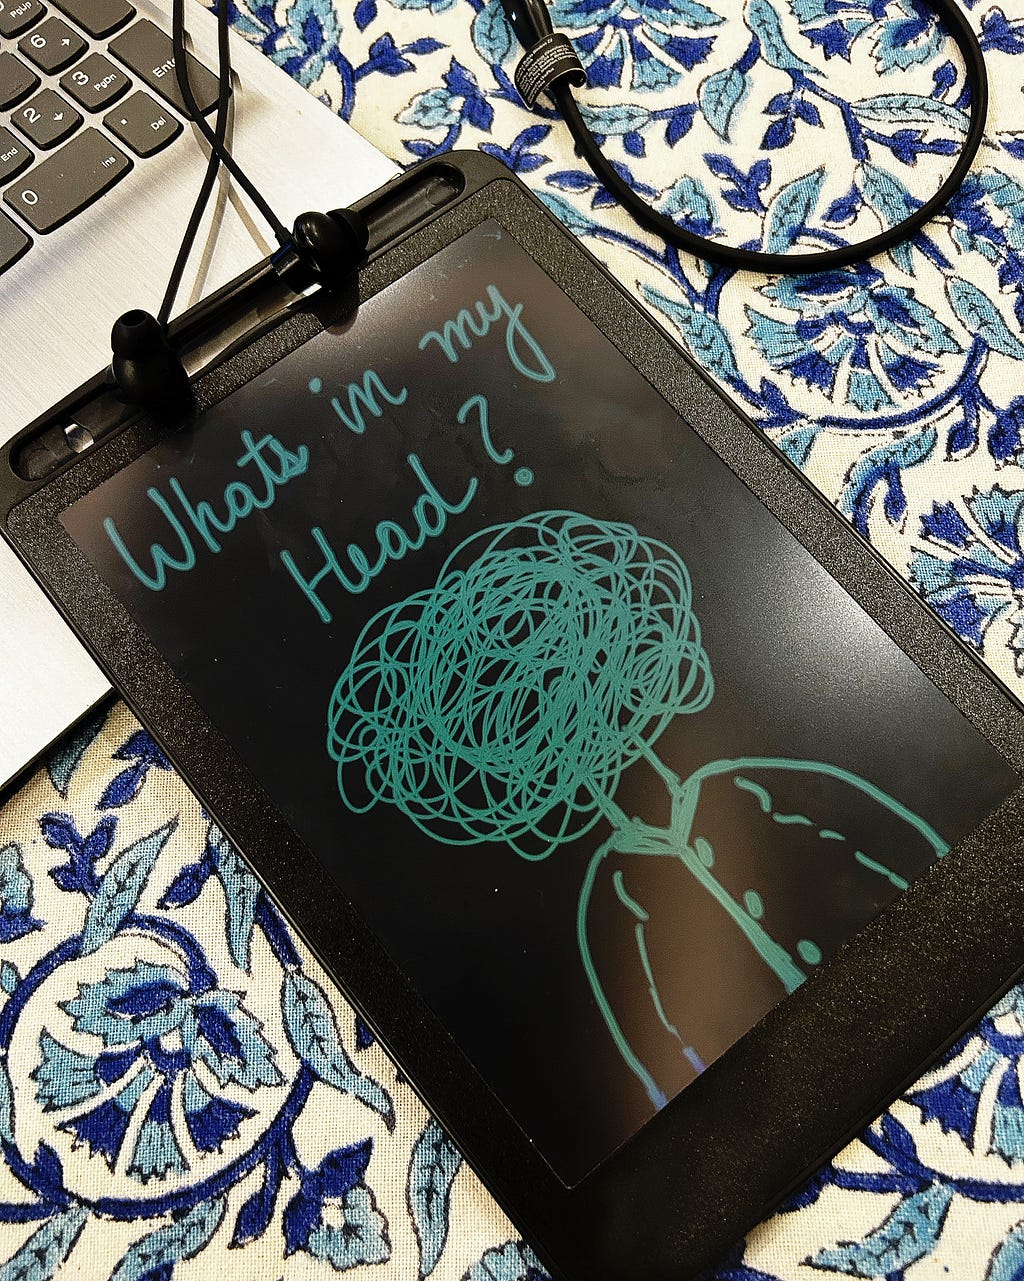 Whats in my
Head?
6 →
PgUp
3
PgDn
Ent
2 ↓
.
Del
End
0
Ins